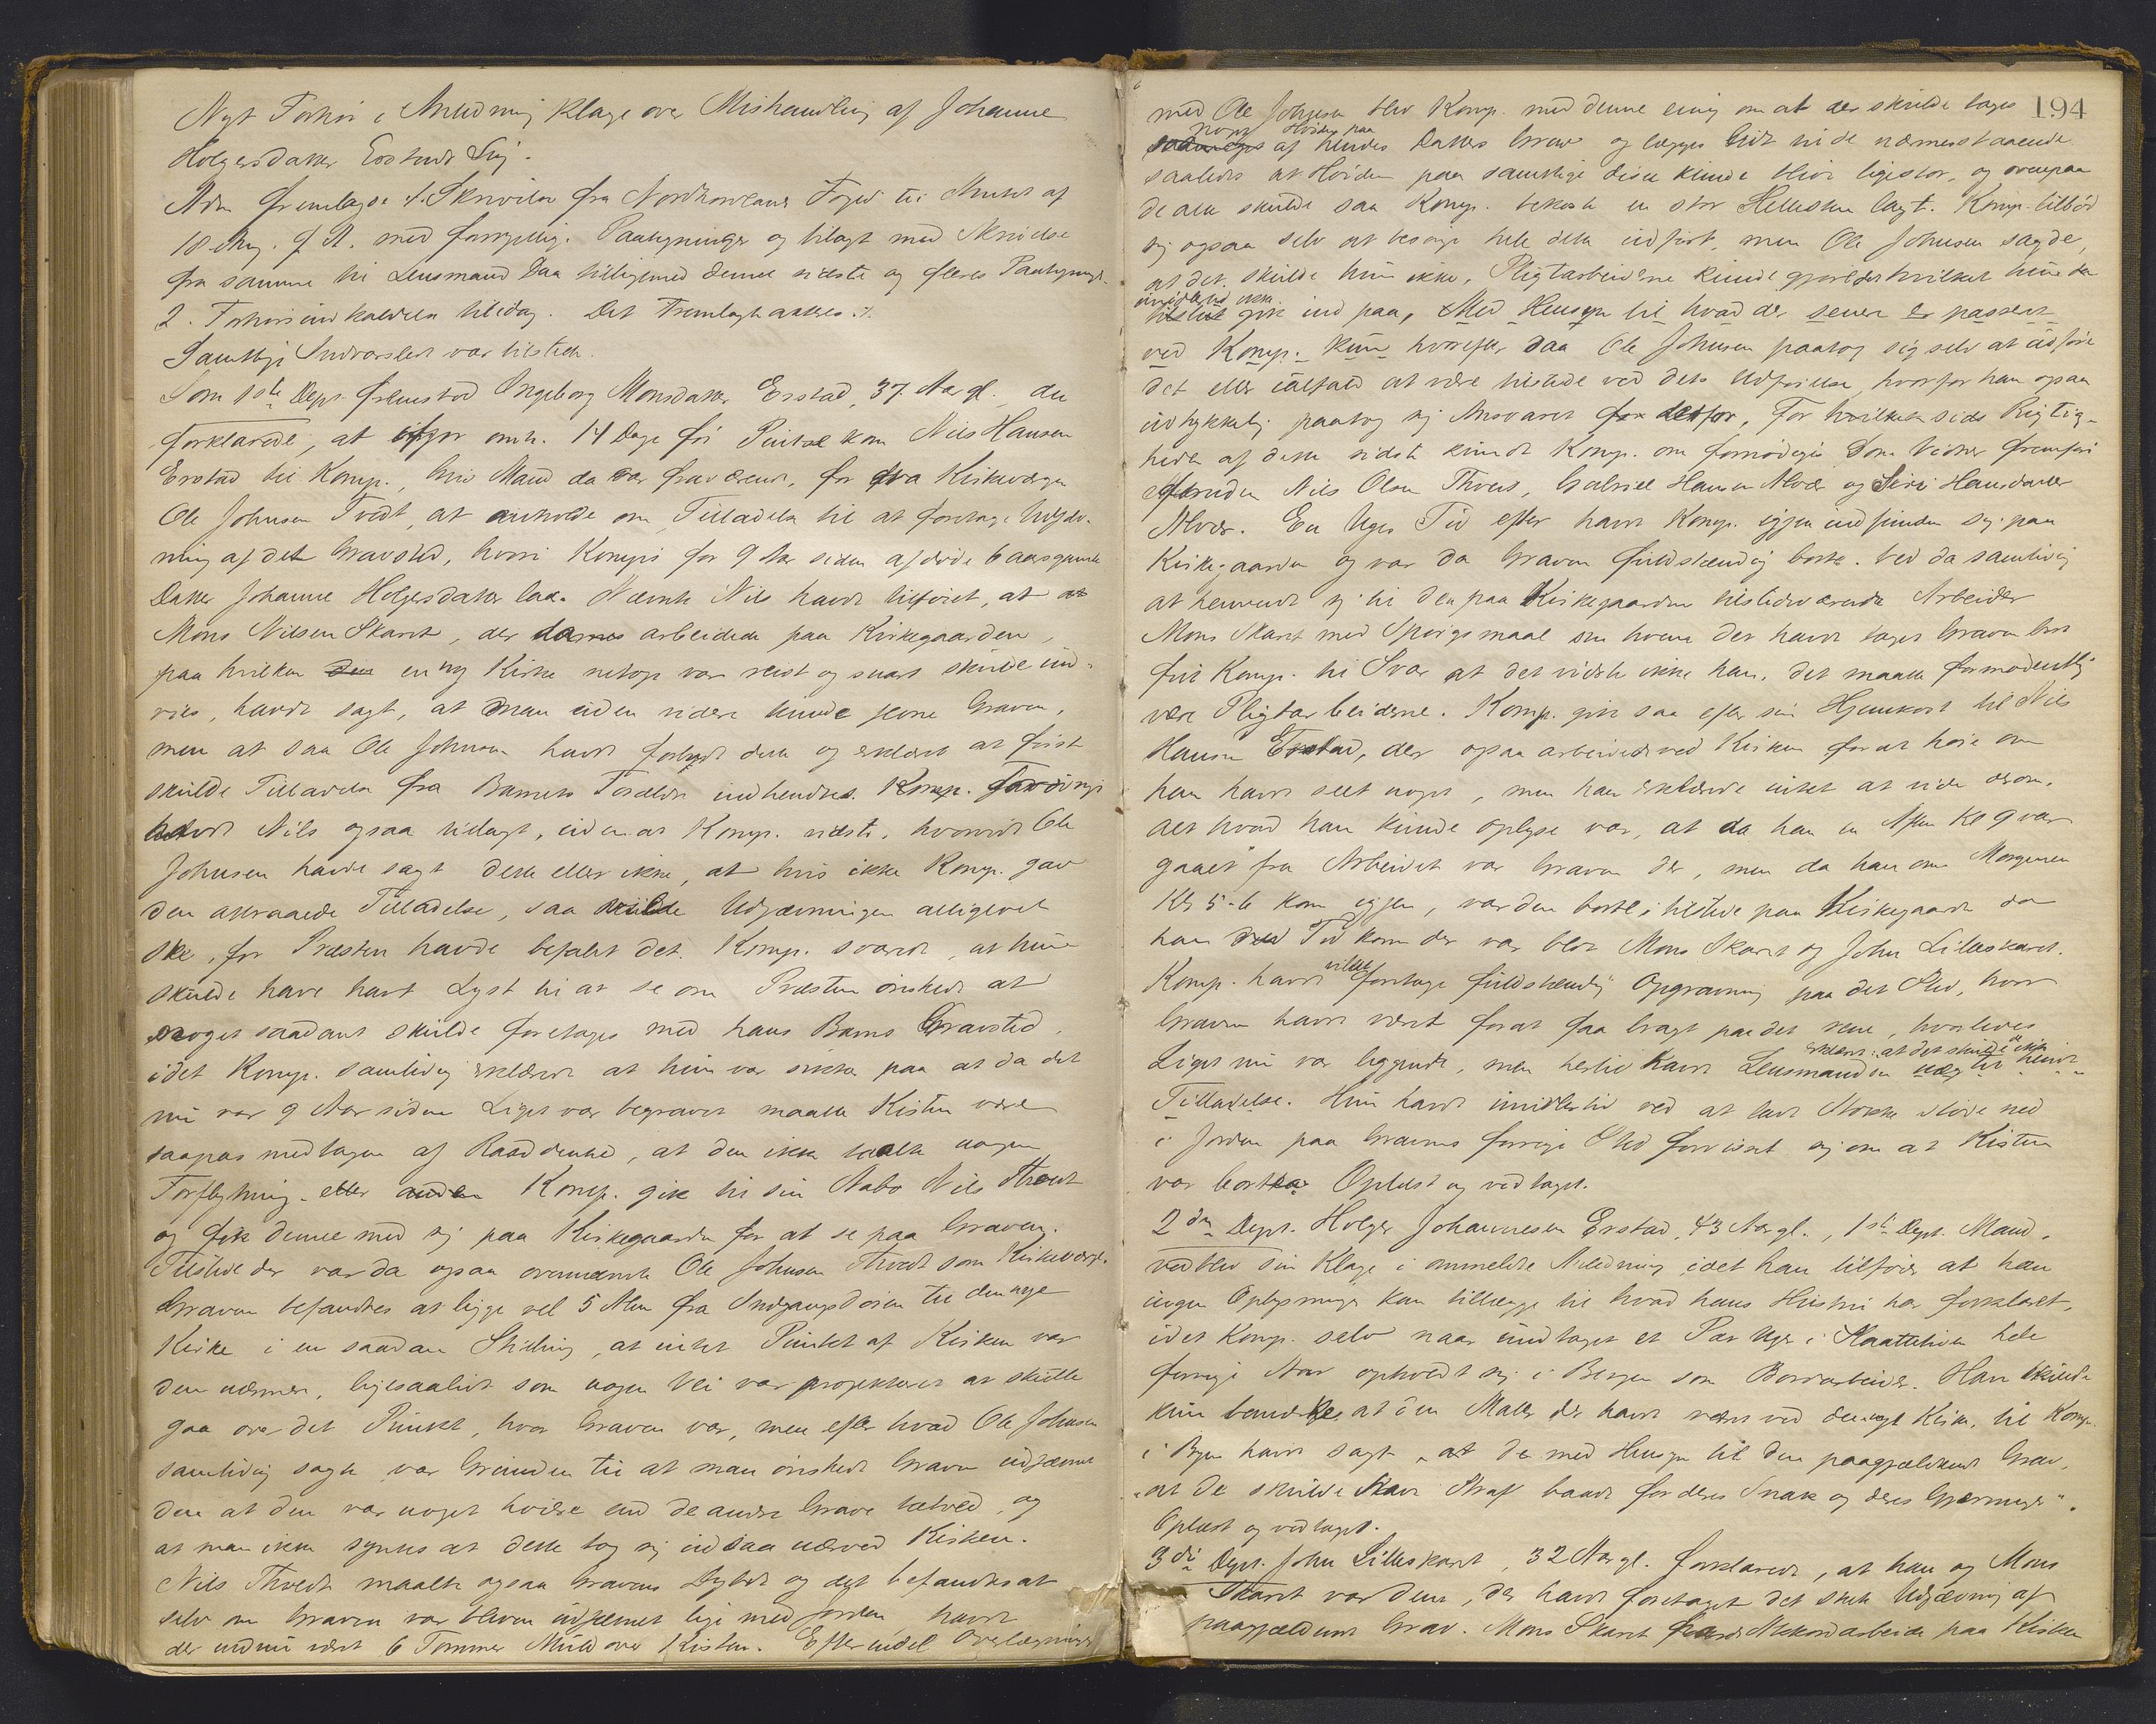 Nyt Forhør i Anledning Klage over Mishandling af Johanne
Holgersdatter Erstads Lig.
Adm fremlagde 1. Skrivelse fra Nordhordlands Foged til Amtet af
18 Aug. f. A. med forskjellig. Paategninger og bilagt med Skrivelse
fra samme til Lensmand Daa tilligemed dennes sidste og fleres Paategninger
2. Forhørsindkaldelse til idag. Det Fremlagte akteres.
Samtlige Indvarslede var tilstede.
Som 1ste Dept. fremstod Ingeborg Monsdatter Erstad, 37 Aar gl. der
forklarede, at ifjor omtr. 14 Dage før Pintse kom Nils Hansen
Erstad til Komp., hvis Mand da var fraværende, for fra Kirkeværgen
Ole Johnsen Tvedt at anholde om Tilladelse til at foretage Udjev-
ning af det Gravsted, hvori Komp's for 9 Aar siden afdøde 6 aarsgamle
Datter Johanne Holgersdatter laa. Nævnte Nils havde tilføiet, at
Mons Nilsen Skaret, der arbeidede paa Kirkegaarden,
paa hvilken en ny Kirke netop var reist og snart skulde ind-
vies, havde sagt, at man uden videre kunde jevne Graven,
men at saa Ole Johnsen havde forbydt dette og erklæret at først
skulde Tilladelse fra Barnets Forældre indhentes. Komp. forøvrigt
havde Nils ogsaa udsagt, uden at Komp. vidste, hvorvidt Ole
Johnsen havde sagt dette eller ikke, at hvis ikke Komp. gav
den attraaede Tilladelse, saa vilde Udjævningen alligevel
ske, for Præsten havde befalet det. Komp. svarede, at hun
skulde have havt Lyst til at se om Præsten ønskede at
noget saadant skulde foretages med hans Barns Gravsted,
idet Komp. samtidig erklærede at hun var sikker paa at da det
nu var 9 Aar siden Liget var begravet maatte Kisten være
saapas medtagen af Raaddenhed, at den ikke taalte nogen
Forflytning. Komp. gik til sin Nabo Nils Thvedt
og fik denne med sig paa Kirkegaarden for at se paa Graven.
Tilstede der var da ogsaa ovennævnte Ole Johnsen Thvedt som Kirkeværge.
Graven befandtes at ligge vel 5 Alen fra Indgangsdøren til den nye
Kirke i en saadan Stilling, at intet Punkt af Kirken var
den nærmere, ligesaalidt som nogen Vei var projekteret at skulle
gaa over det Punkt, hvor Graven var, men efter hvad Ole Johnsen
samtidig sagde var Grunden til at man ønskede Graven udjævnet
den at den var noget høiere end de andre Grave tætved, og
at man ikke syntes at dette tog sig ud saa nærved Kirken.
Nils Thvedt maalte ogsaa Gravens Dybde og det befandtes at
selv om Graven var bleven udjævnet lige med Jorden, havde
der endnu været 6 Tommer Muld over Kisten. Efter endel Overlægninger
194
med Ole Johnsen blev Komp. med denne enig om at der skulde tages
noget Høiden paa
af hendes Datters Grav og lægges lidt til de nærmeststaaende
saaledes at Høiden paa samtlige disse kunde blive ligestor, og ovenpaa
de alle skulde saa Komp. bekoste en stor Hellesten lagt. Komp. tilbød
sig ogsaa selv at besørge hele dette udført, men Ole Johnsen sagde,
at det skulde hun ikke, Pligtarbeiderne kunde gjøre det hvilket hun da
imidlertid ikke
tilslut gik ind paa, Med Hensyn til hvad der senere er passeret
ved Komp. kun hvorefter saa Ole Johnsen paatog sig selv at udføre
det eller ialfald at være tilstede ved dets Udførelse, hvorfor han ogsaa
udtrykkelig paatog sig Ansvaret derfor, For Rigtig-
heden af dette sidste kunde Komp. om fornødiges som Vidner fremføre
foruden Nils Olsen Thvedt, Gabriel Hansen Alvær og Siri Hansdatter
Alvær. En Uges Tid efter havde Komp. igjen indfunden sig paa
Kirkegaarden og var da Graven fuldstændig borte. Ved da samtidig
at henvende sig til den paa Kirkegaarden tilstedeværende Arbeider
Mons Skaret med Spørgsmaal om hvem der havde taget Graven bort
fik Komp. til Svar at det vidste ikke han, det maatte formodentlig
være Pligtarbeiderne. Komp. gik saa efter sin Hjemkomst til Nils
Hansen Erstad, der ogsaa arbeidede ved Kirken for at høre om
han havde seet noget, men han erklærede intet at vide derom.
Alt hvad han kunde oplyse var, at da han en Aften Kl 9 var
gaaet fra Arbeidet var Graven der, men da han om Morgenen
Kl 5-6 kom igjen, var den borte; tilstede paa Kirkegaarden da
han Tid kom der var blot Mons Skaret og John Lilleskaret.
Komp. havde villet foretage fuldstændig Opgravning paa det Sted, hvor
Graven havde været for at faa bragt paa det rene, hvorledes
erklæret: at det skulde de ikke
Liget nu var liggende, men hertil havde Lensmanden
Tilladelse. Hun havde imidlertid ved at lade Stokke støde ned
i Jorden paa Gravens forrige Sted forvisset sig om at Kisten
var borte. Oplæst og vedtaget.
2den Dept. Holger Johannesen Erstad, 43 Aar gl., 1ste Depts. Mand,
vedblev sin Klage i anmeldte Anledning idet han tilføier at han
ingen Oplysninger kan tillægge til hvad hans Hustru har forklaret,
idet Komp. selv naar undtages et Par Uger i Slaattetiden hele
forrige Aar opholdt sig i Bergen som Bordarbeider. Han skulde
kun bemærke at en Maler der havde været ved den nye Kirke, til Komp.
i Byen havde sagt „at de med Hensyn til den paagjældende Grav,
„at de skulde have Straf baade for deres Snak og deres Gjerninger".
Oplæst og vedtaget.
3die Dept. John Lilleskaret, 32 Aar gl. forklarede, at han og Mons
Skaret var dem, der havde foretaget det skete Udjævning af
paagjældende Grav. Mons Skaret havde Akkordarbeide paa Kirken